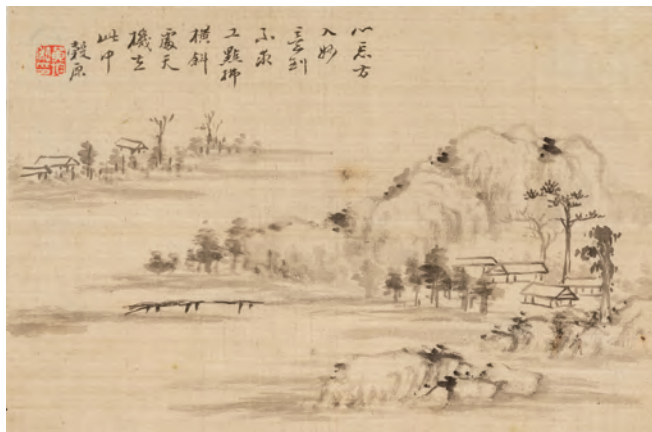 心忘方
入妙
意到
不求
工點拂
橫斜
處天
機在
此中
穀原